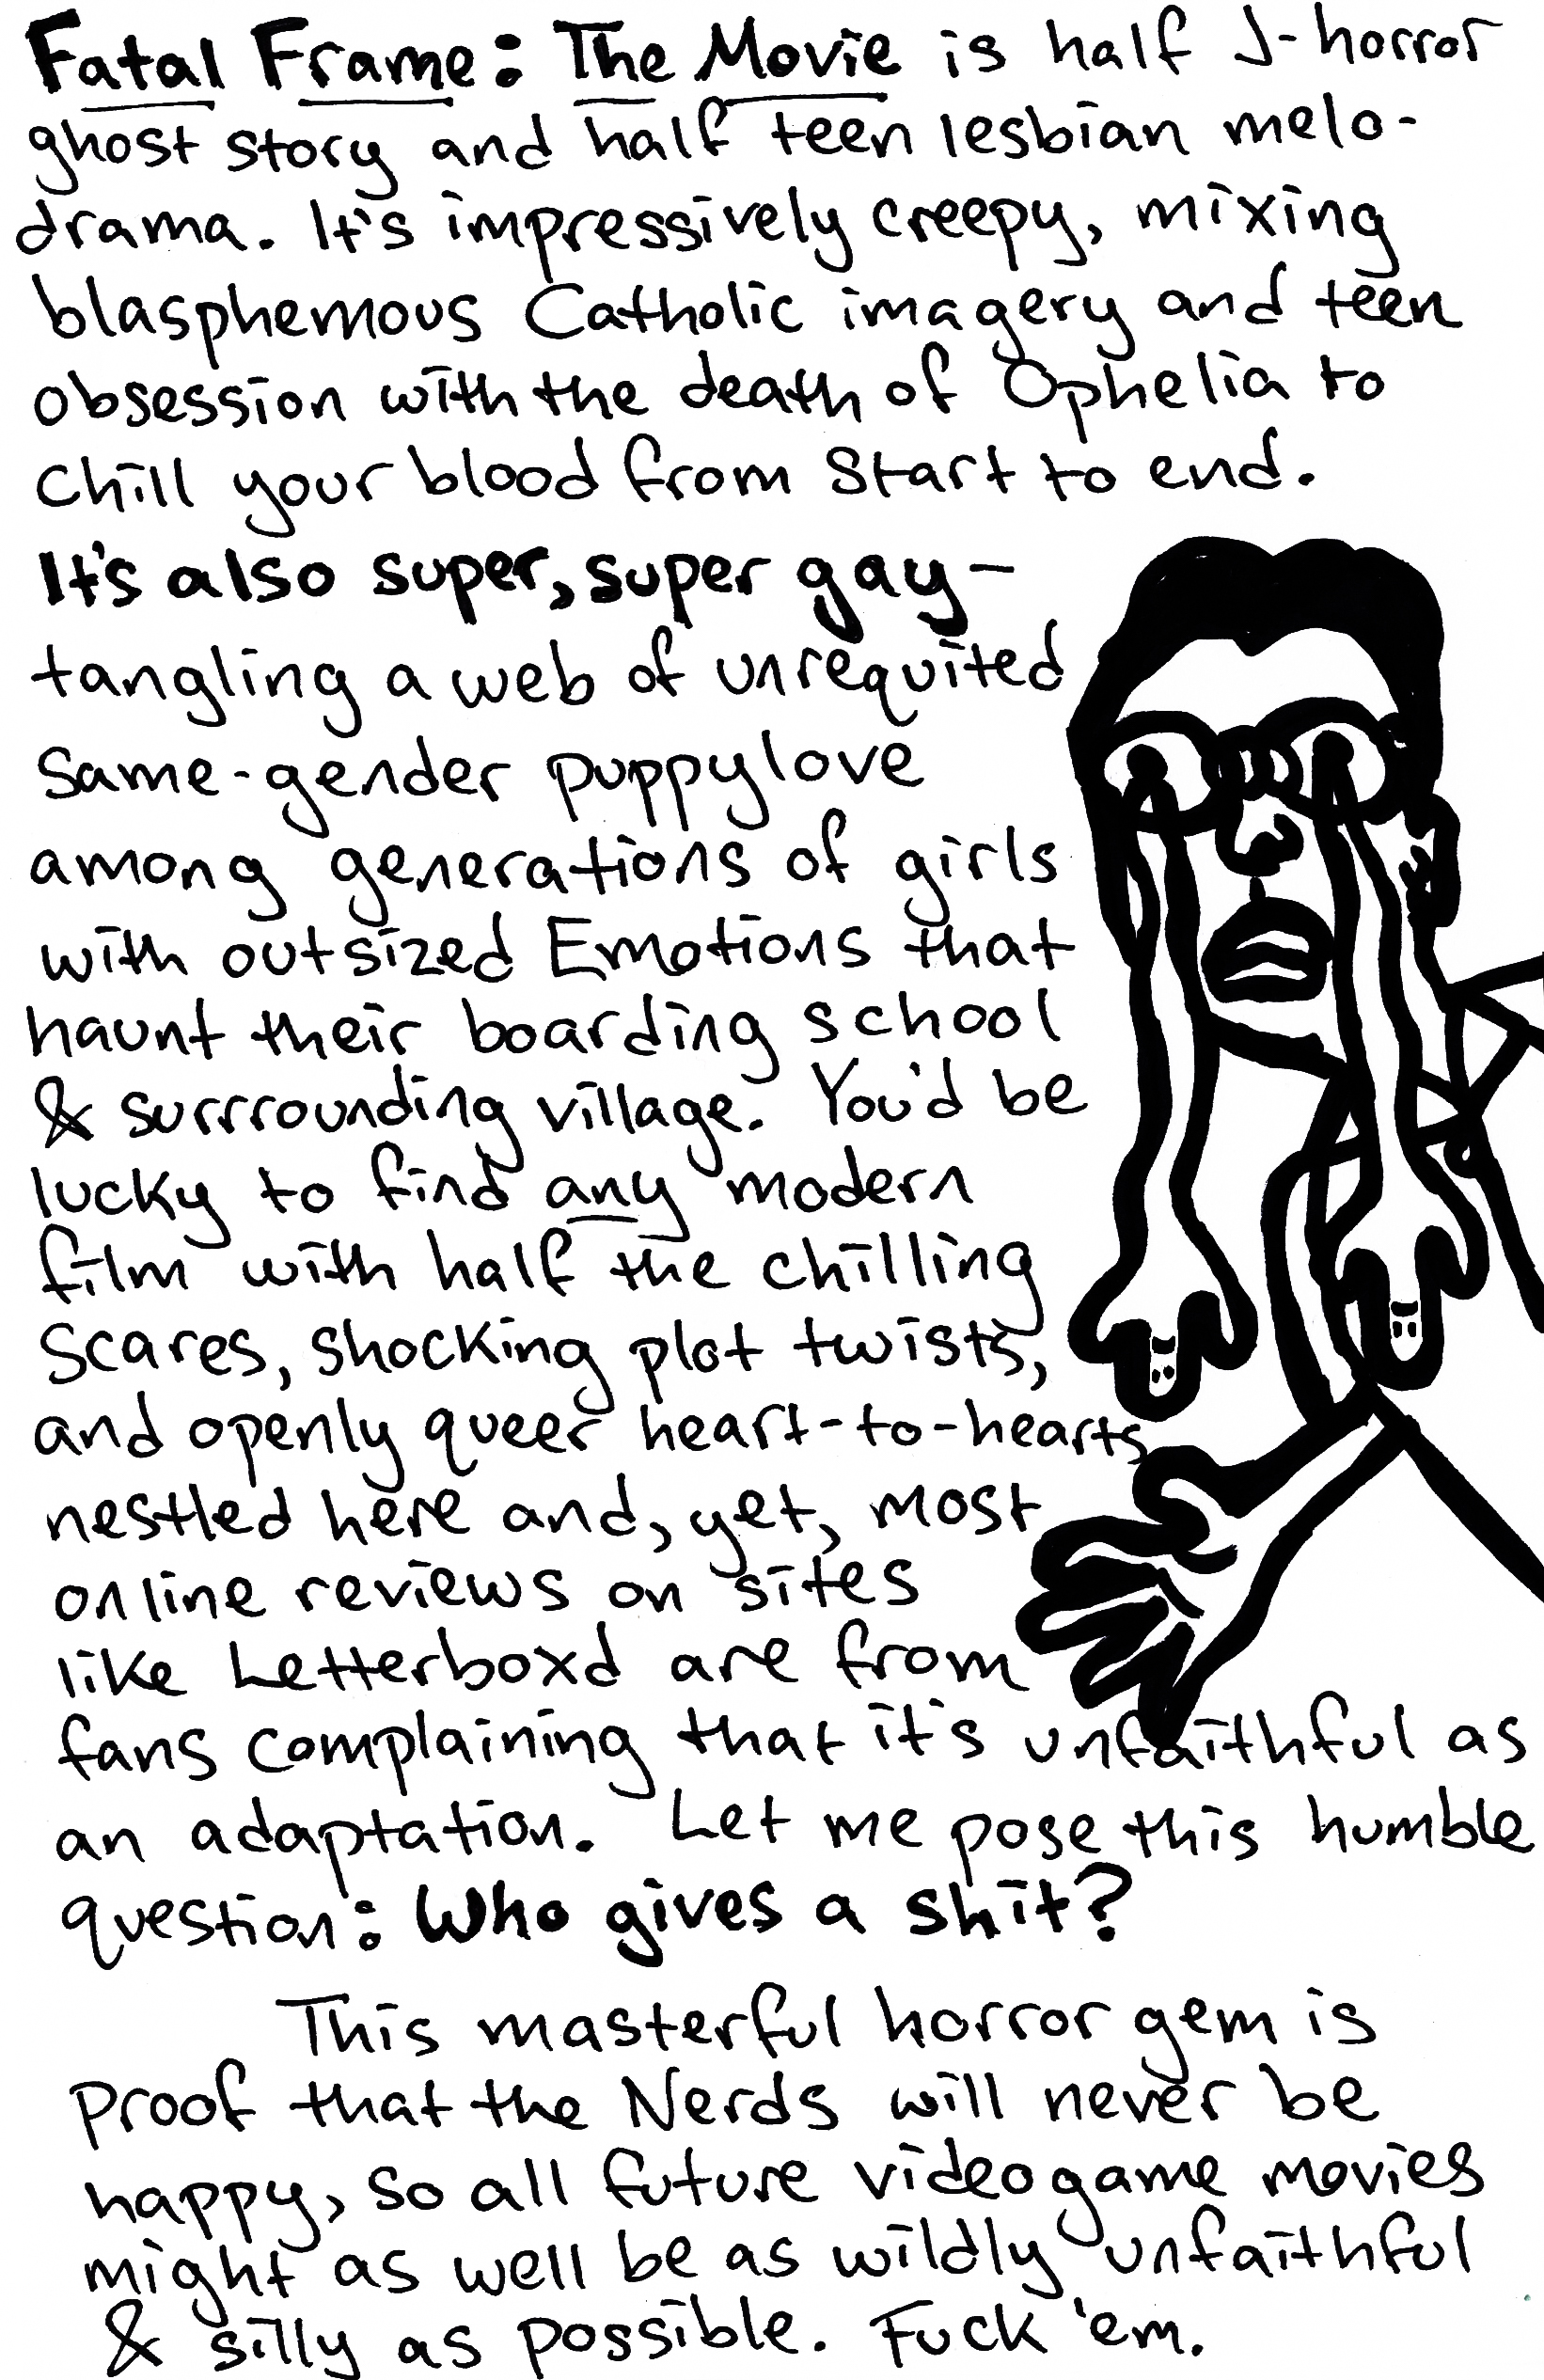 Fatal Frame: The Movie is half J-horror
ghost story and half teen lesbian melo-
drama. It's impressively creepy, mixing
blasphemous Catholic imagery and teen
obsession with the death of Ophelia to
chill your blood from start to end.
It's also super, super gay-
tangling a web of unrequited
same-gender puppylove
among generations of girls
with outsized Emotions that
haunt their boarding school
& surrrounding village. You'd be
lucky to find any modern
film with half the chilling
scares, shocking plot twists,
and openly queer heart-to-hearts
nestled here and, yet, most
online reviews on sites
like Letterboxd are from
fans complaining that it's unfaithful as
an adaptation. Let me pose this humble
question: Who gives a shit?
This masterful horror gem is
proof that the Nerds will never be
happy, so all future videogame movies
might as well be as wildly unfaithful
& silly as possible. Fuck 'em.